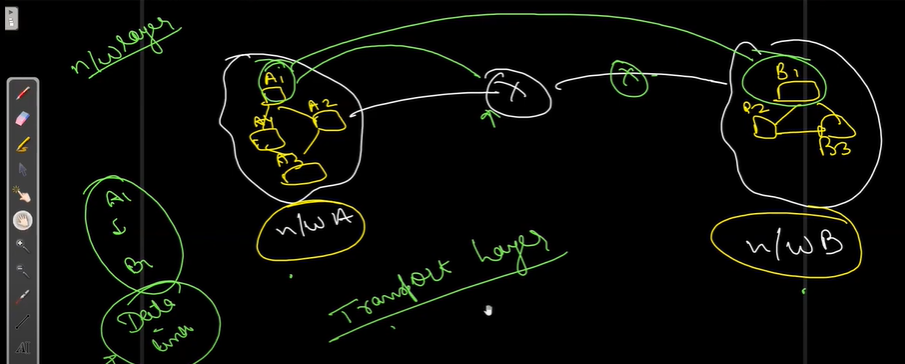 n/w layer
A1
A2
A4
A3
n/w A
X
X
B1
B2
B3
n/w B
A1
↓
B1
Data
-
Link
Transport Layer
AI